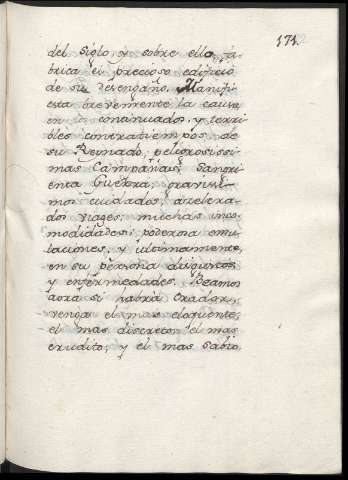 171.
del siglo, y sobre ello fa-
brica el precioso edificio
de su desengaño. Manifi-
esta brevemente la causa
en los continuados, y terri-
bles contratiempos de
su Reynado, peligrosissi-
mas Campañas, Sangri-
enta Guerra, gravissi-
mos cuidados, azelera-
dos viages, muchas inco-
modidades, poderosa emu-
laciones, y ultimamente,
en su persona disgustos
y enfermedades. Veamos
aora si habrà Orador,
venga el mas eloquente,
el mas discreto, el mas
erudito, y el mas sabio,